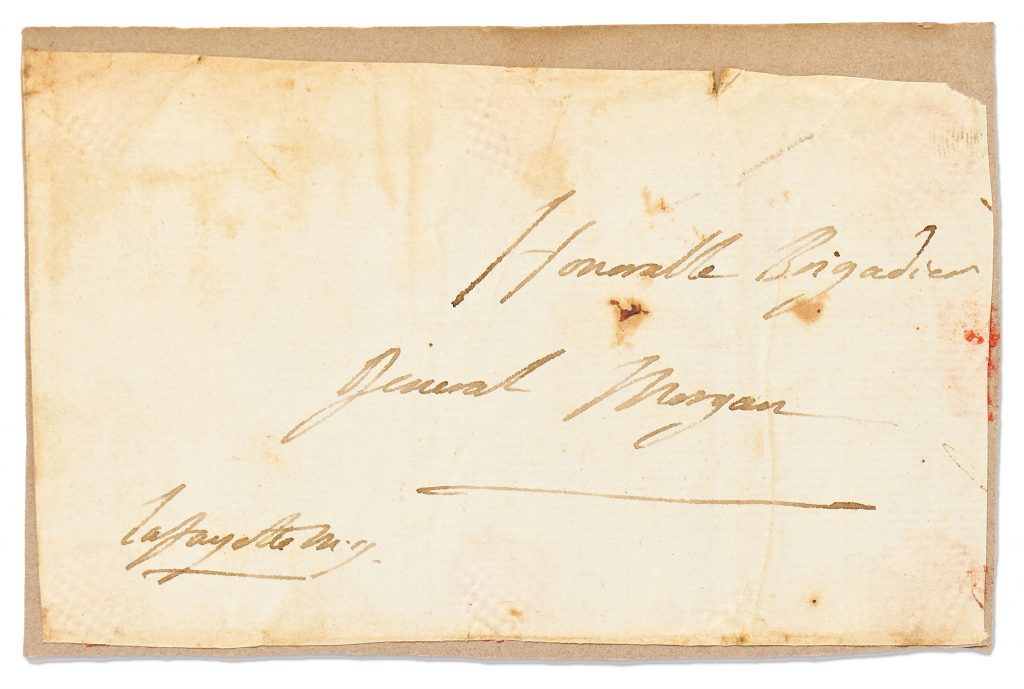 Honorable Brigadier
General Morgan
Lafayette M.g.